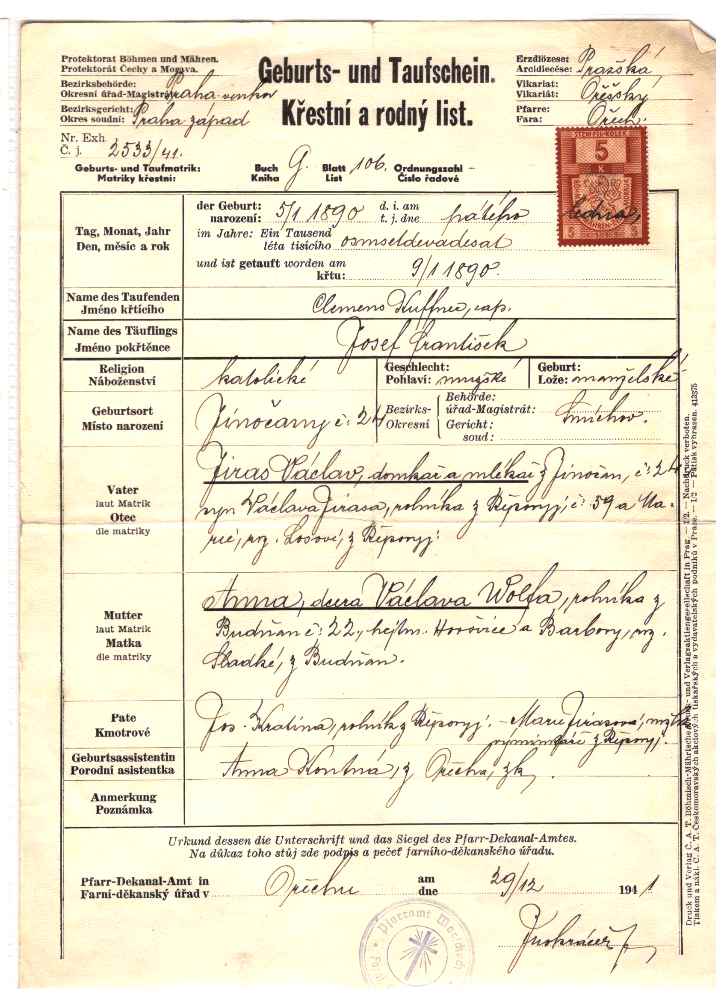 Protektorat Böhmen und Mähren.
Protektorát Čechy a Morava.
Bezirksbehörde:
Okresní úřad-Magistrát: Praha-venkov
Bezirksgericht:
Okres soudní: Praha západ
Nr. Exh.
Č. j. 2533/41.
Geburts- und Taufschein.
Křestní a rodný list.
Erzdiözese:
Arcidiecése: Pražská
Vikariat:
Vikariát: Ořešský
Pfarre:
Fara: Ořech
Geburts- und Taufmatrik: Buch G. Blatt 106. Ordnungszahl -
Matriky křestní: Kniha List Číslo řadové
STEMPEL-KOLEK
5
K
5 5
ledna,
Tag, Monat, Jahr
Den, měsíc a rok
der Geburt: d. i. am
narození: 5/1 1890 t. j. dne pátého
im Jahre: Ein Tausend
léta tisícího osmsetdevadesát
und ist getauft worden am
křtu: 9/1 1890.
Name des Taufenden
Jméno křtícího
Clemens Kuffner, cap.
Name des Täuflings
Jméno pokřtěnce
Josef František
Religion
Náboženství
katolické
Geschlecht:
Pohlaví: mužské
Geburt:
Lože: manželské
Geburtsort
Místo narození
Jinočany č: 24
Bezirks-
Okresní
Behörde:
úřad-Magistrát: Smíchov.
Gericht:
soud:
Vater
laut Matrik
Otec
dle matriky
Jiras Václav, domkař a mlékař z Jinočan, č: 24
syn Václava Jirasa, rolníka z Řeporyj, č: 59 a Ma-
rie, roz. Losové, z Řeporyj.
Mutter
laut Matrik
Matka
dle matriky
Anna, dcera Václava Wolfa, rolníka z
Budňan č: 22, hejtm. Hořovice a Barbory, roz.
Sladké, z Budňan.
Pate
Kmotrové
Jos. Kratina, rolník z Řeporyj. - Marie Jirasová,
z Řeporyj.
Geburtsassistentin
Porodní asistentka
Anna Kontná, z Ořecha, zk.
Anmerkung
Poznámka
Urkund dessen die Unterschrift und das Siegel des Pfarr-Dekanal-Amtes.
Na důkaz toho stůj zde podpis a pečeť farního-děkanského úřadu.
Pfarr-Dekanal-Amt in am
Farní-děkanský úřad v Ořechu dne 29/12 1941
Pfarramt
Druck und Verlag C. A. T. Böhmisch-Mährische Druck- und Verlagsaktiengesellschaft in Prag. — I/2. — Nachdruck verboten.
Tiskem a nákl. C. A. T. Českomoravských akciových tiskařských a vydavatelských podniků v Praze. — I/2 — Patisk vyhrazen. 412375